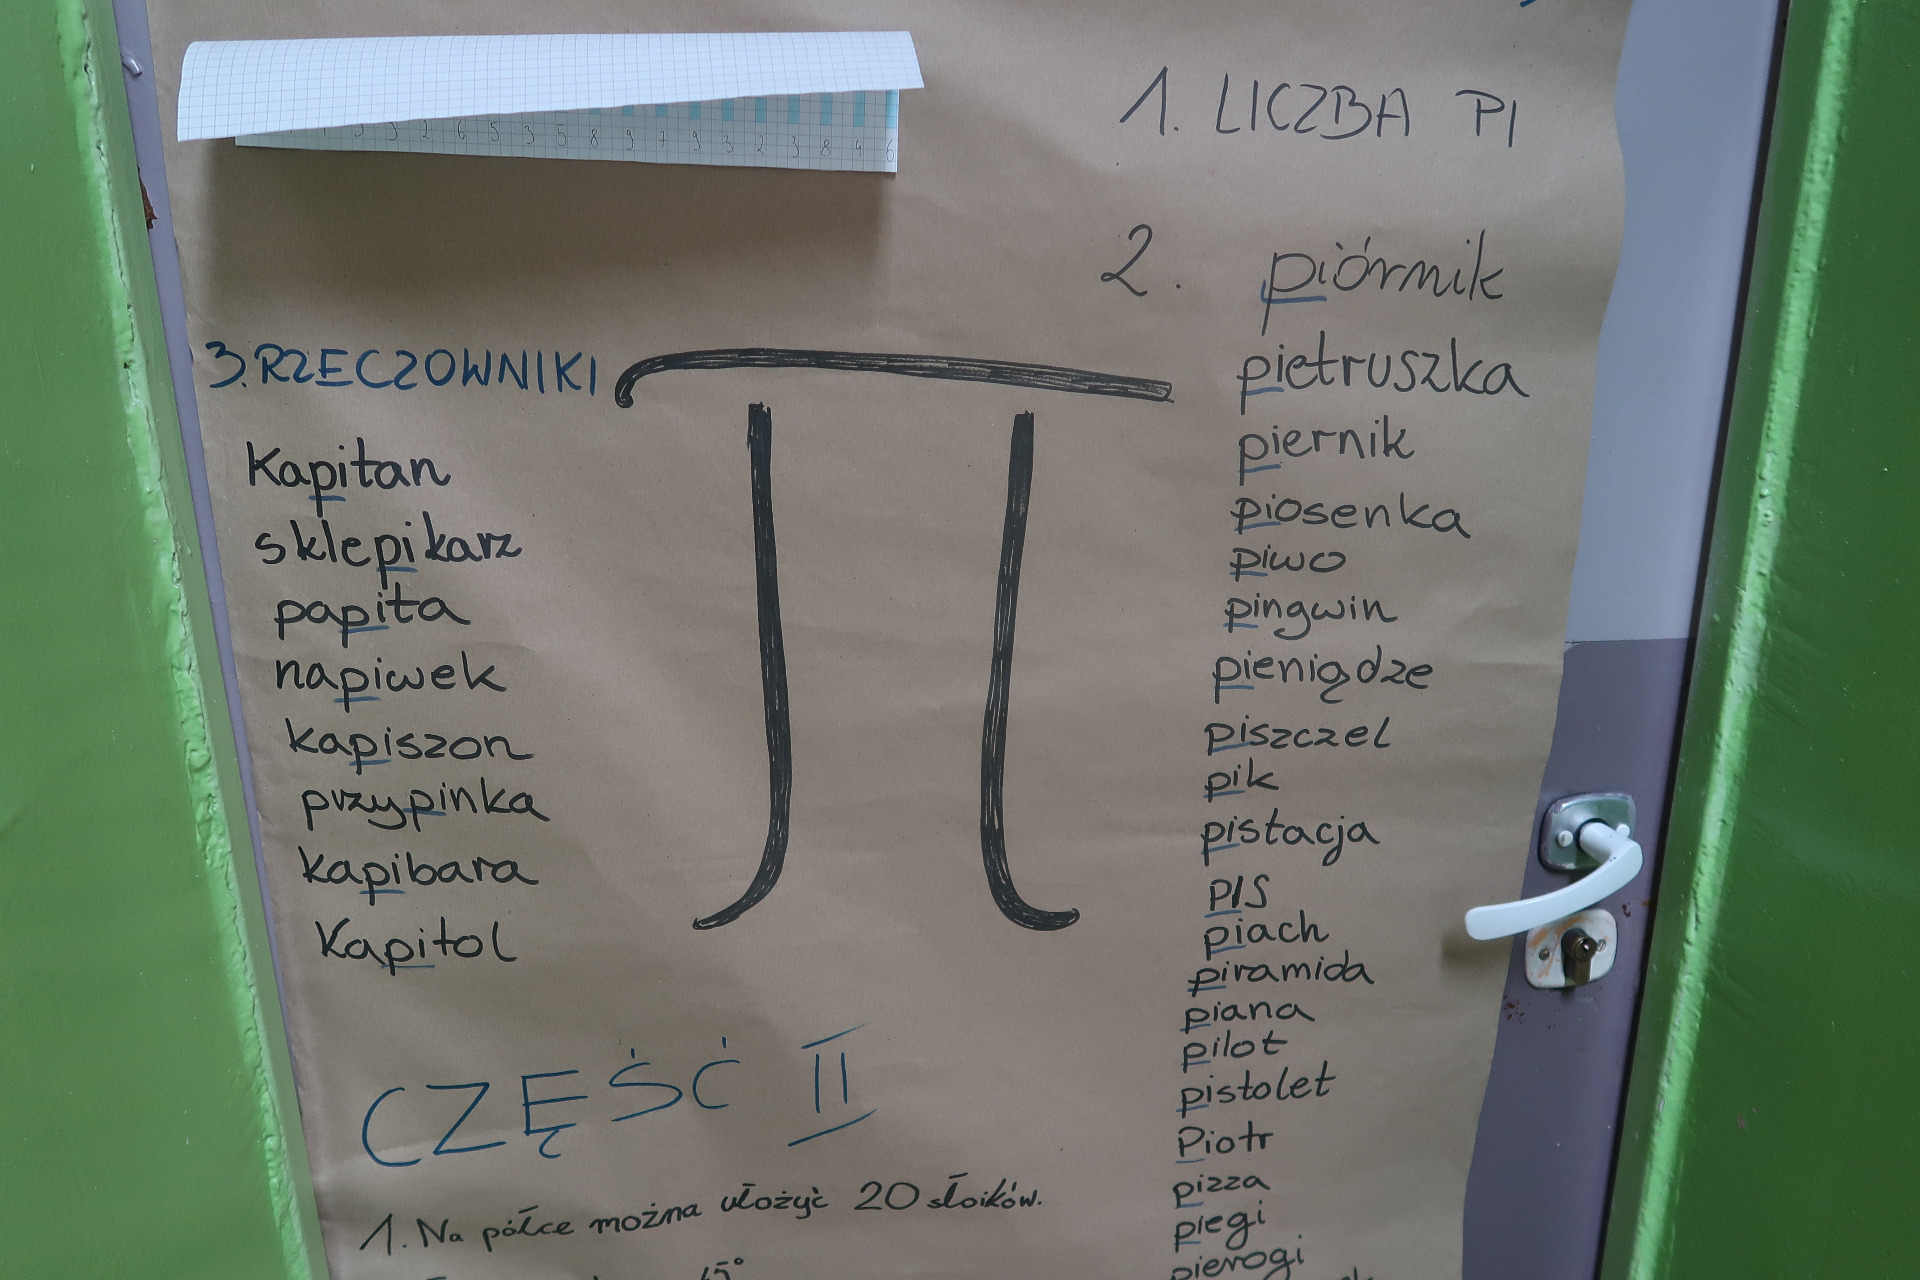 2 6 5 3 5 8 9 7 9 3 2 3 8 4 6
1. LICZBA PI
2. piórnik
pietruszka
piernik
piosenka
piwo
pingwin
pieniądze
piszczel
pik
pistacja
PIS
piach
piramida
piana
pilot
pistolet
Piotr
pizza
piegi
pierogi
3. RZECZOWNIKI
π
Kapitan
sklepikarz
papita
napiwek
kapiszon
przypinka
kapibara
Kapitol
CZĘŚĆ II
1. Na półce można ułożyć 20 słoików.